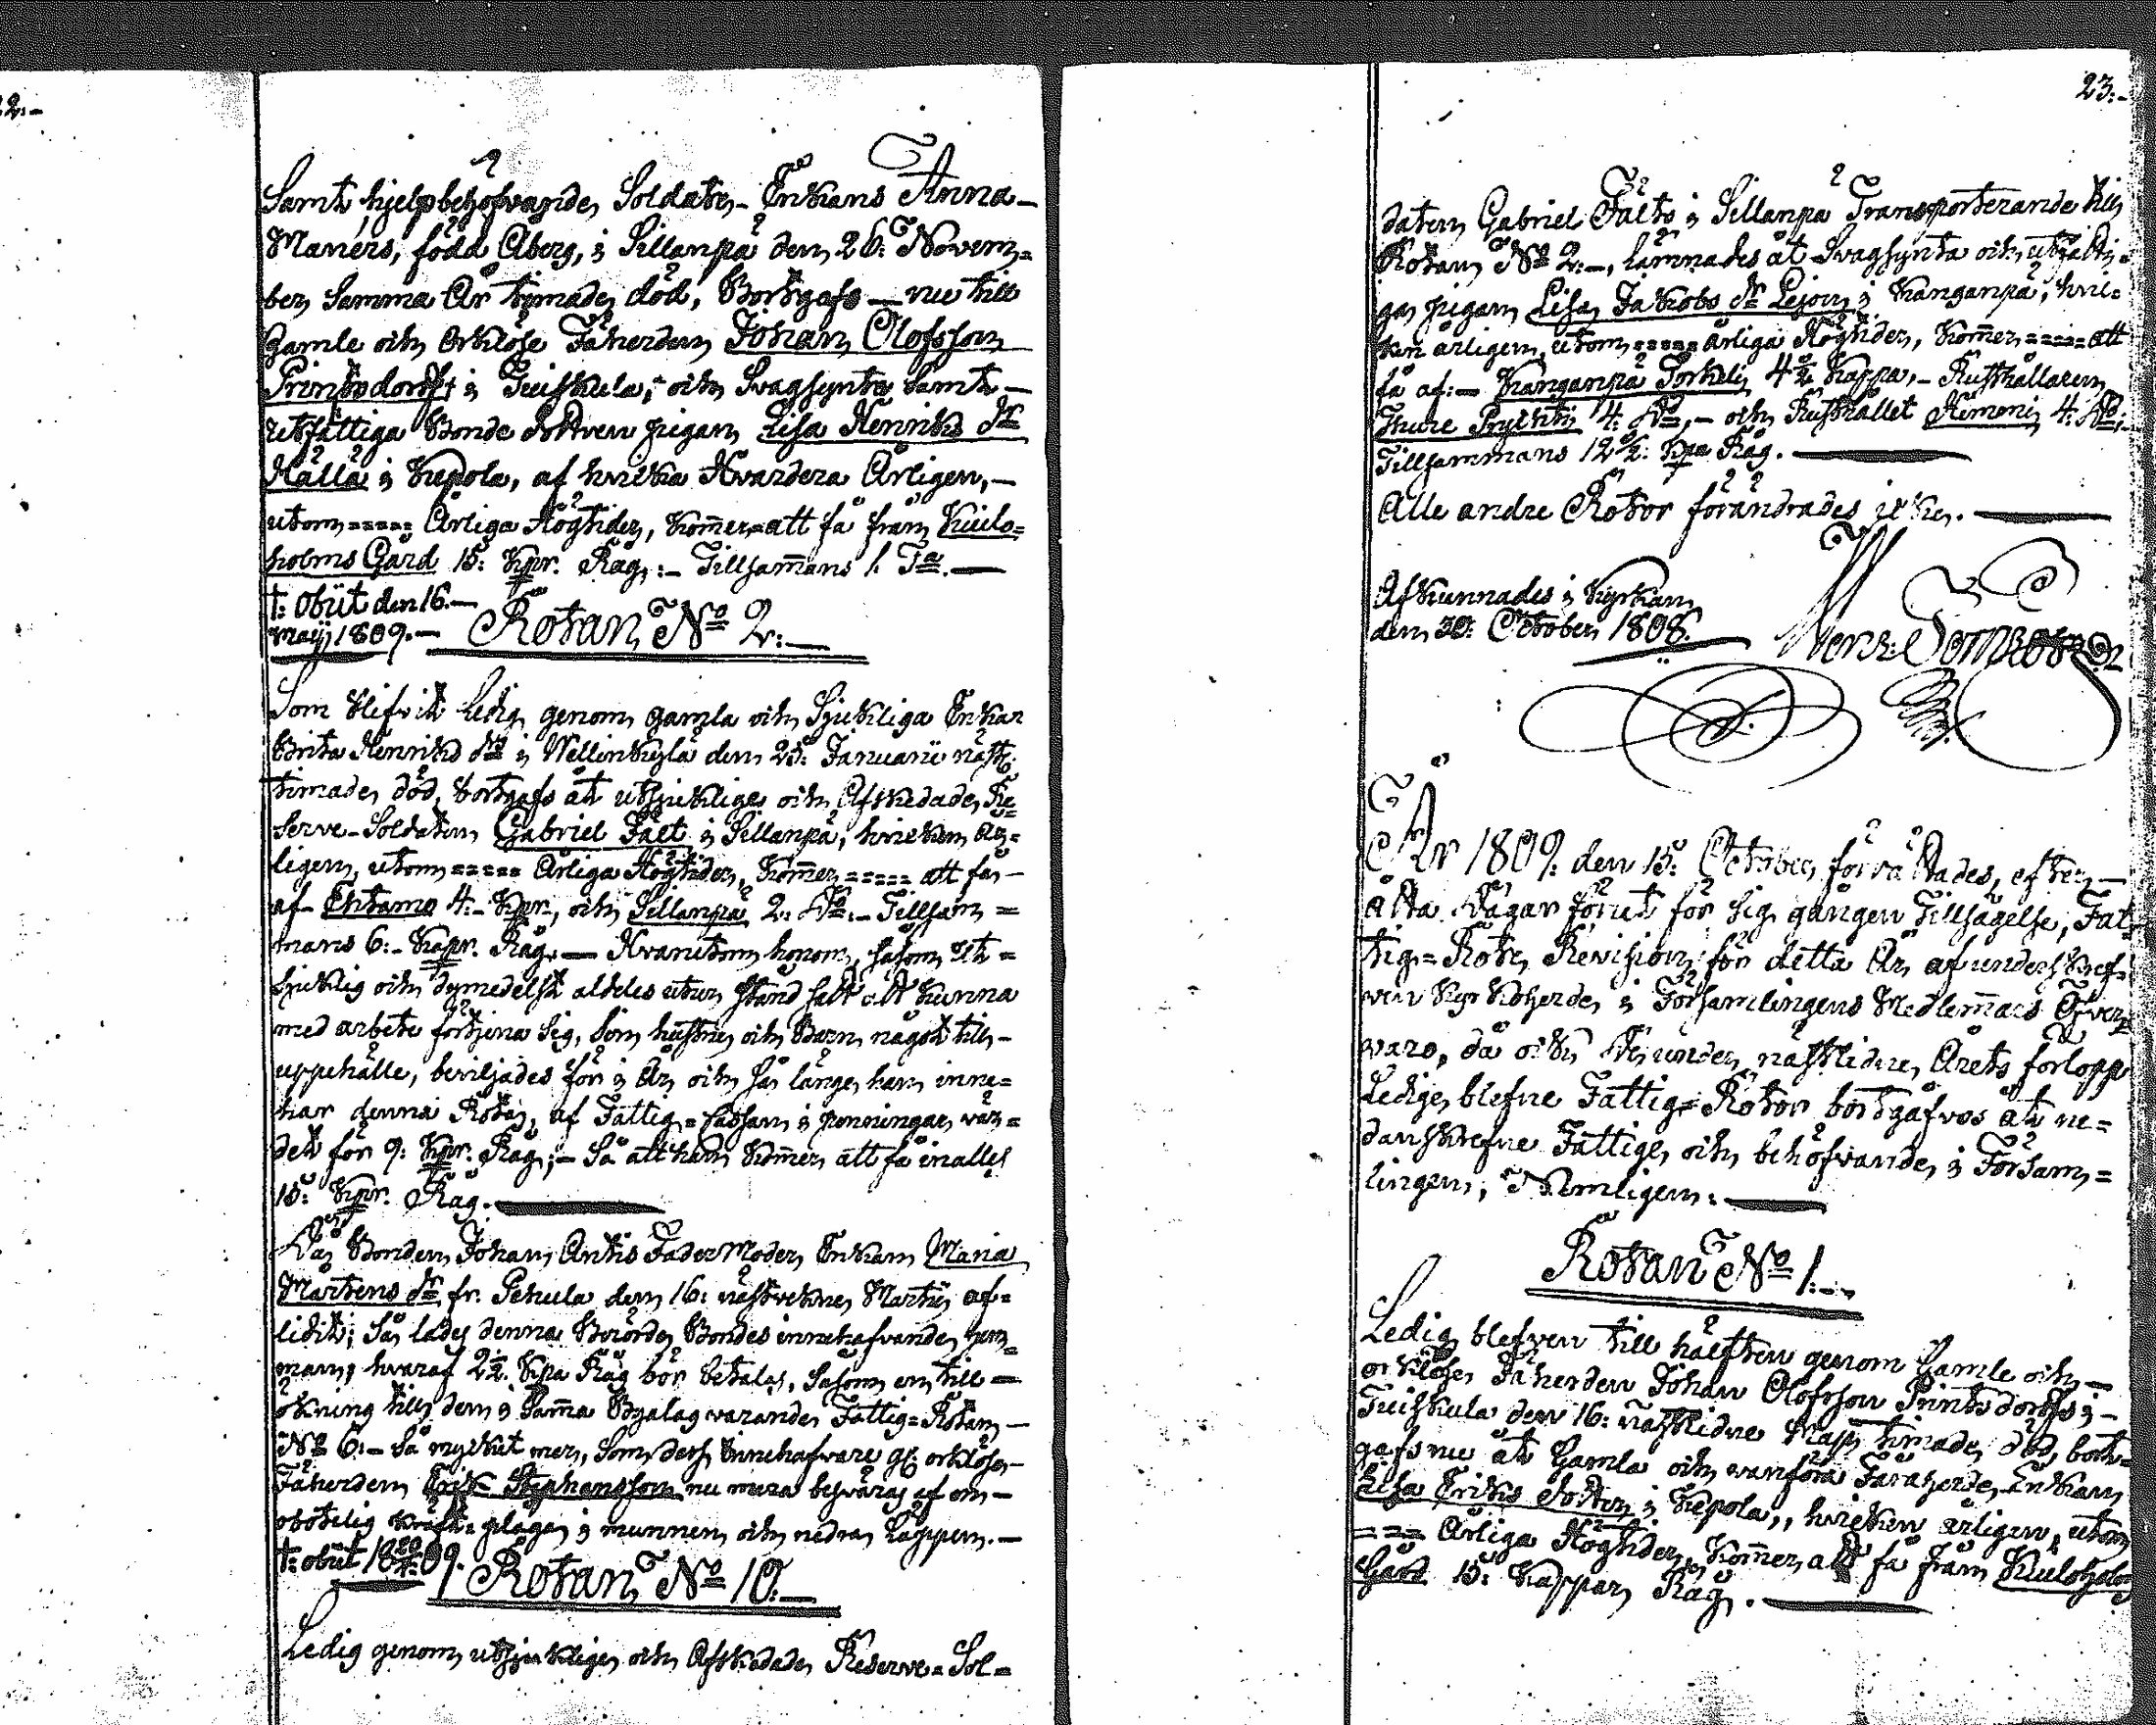 22:-
Samt hjelpbehöfvande Soldate-Enkans Anna
Maners, född Åberg, i Sillanpä den 26: Novem=
ber samma År timade död, Bortgafs nu till
Gamle och Orklöse Fäherden Johan Olofsson
Printsdorff i Tuiskula, och Svagsynta samt
utfattiga Bonde dottren pigan Lisa Henriks dr
Källä i Kepola, af hvilka Hvardera Årligen,
utom ===== Årliga Högtider, kom̄er att få från Kiulo=
holms Gård 15: Kpr. Råg, :- Tillsam̄ans 1. Ta.
†: Obiit den 16.
Maij 1809.- Rotan No 2:-
Som blifvit Ledig genom gamla och Sjukliga Enkan
Brita Henriks dr i Wellinkylä den 25: Januarii näst
timade död, bortgafs åt utsjuklige och Afskedade Re=
serve-Soldaten Gabriel Fält i Sillanpä, hvilken år=
ligen, utom ===== Årliga Högtider, kom̄er ===== att få
af Ehtamo 4:- Kpr., och Sillanpä 2: Do.- Tillsam=
mans 6:- Kapr. Råg. — Hvarutom honom, såsom ut=
sjuklig och dymedelst aldeles utur stånd satt att kunna
med arbete förtjena sig, som hustru och Barn något till-
uppehälle, beviljades för i År, och så länge han inne=
har denna Rota, af Fattig=Cassan i penningar, vär=
det för 9: Kpr. Råg;- Så att han kom̄er att få inalles
15: Kpr. Råg.
Då Bonden Johan Antis Fader Moder, Enkan Maria
Mårtens dr fr. Pehula den 16: nästvekne Martii af=
lidit; Så lades denna Berörde Bondes innehafvande hem=
man, hvaraf 2½. Kpa Råg bör betalas, såsom en till=
ökning till den i Sam̄a Byalag varande Fattig=Rotan
No 6:- Så mycket mer, som dess Innehafvare gl. orklöse
Fäherden Erik Stephansson nu mera besväras af om-
obotelig kräft-plåga i munnen och nedra läppen.-
†: obiit 18 20/4 09.
Rotan No 10:-
Ledig genom utsjuklige och Afskedade Reserve=Sol=
23:-
daten Gabriel Fälts i Sillanpä Transporterande till
Rotan No 2:-, lämnades åt Svagsynta och utfatti=
ga pigan Lisa Jakobs dr Lejon i Kanganpä, hvil=
ken årligen, utom ===== årliga Högtider, kom̄er ===== att
få af:- Kanganpä Torkeli 4½ Kappa,- Rusthållaren
Thure Prytkti 4: Do,- och Rusthållet Hemoni 4: Do:-
Tillsammans 12½: Kpa Råg.
Alle andre Rotor förändrades icke.
Afkunnades i Kyrkan
den 30: October 1808.
År 1809: den 15: October, förrättades, efter
åtta Dagar förut för sig gången Tillsägelse, Fat=
tig=Rote Revision för detta År, af underskref=
ven Kyrkoherde i Församlingens Medlem̄ars Öfver=
varo, då och De, under nästlidne Årets förlopp
Ledige blefne Fattig=Rotor bortgåfvos åt ne=
danskrefne Fattige och behöfvande i Försam=
lingen, Nemligen:
Rotan No 1:-
Ledig blefven till hälften genom Gamle och
orklöse Fäherden Johan Olofsson Printsdorffs i
Tuiskula den 16: nästlidne Maji timade död, bort=
gafs nu åt Gamla och vanföra Fåraherde Enkan
Lisa Eriks dotter i Kepola, hvilken årligen, utom
=== Årliga Högtider, kom̄er att få från Kiuloholms
Gård 15: Kappar Råg.